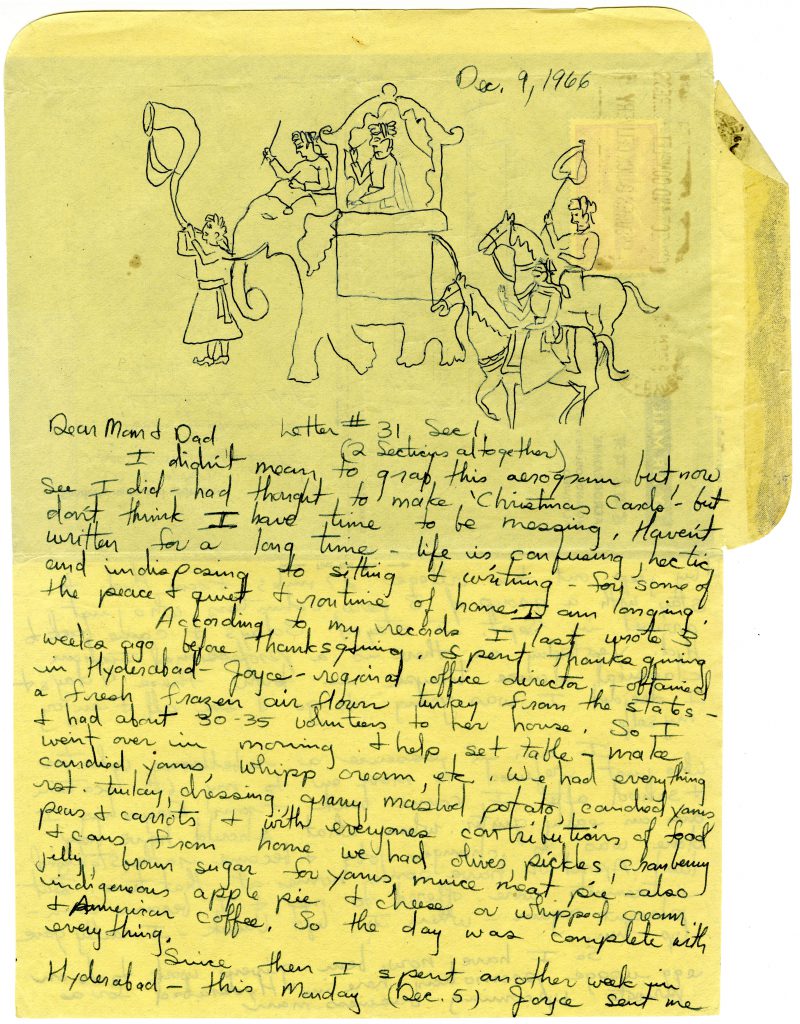 Dec. 9, 1966
Dear Mom & Dad Letter # 31 Sec 1
(2 Sections altogether)
I didn't mean to grab this aerogram but now
see I did - had thought to make 'Christmas Cards' - but
don't think I have time to be messing. Haven't
written for a long time - life is confusing, hectic,
and indisposing to sitting & writing - for some of
the peace & quiet & routine of home I am longing.
According to my records I last wrote 3
weeks ago before Thanksgiving. Spent Thanksgiving
in Hyderabad - Joyce - regional office director, obtained
a fresh frozen air flown turkey from the states -
& had about 30-35 volunteers to her house. So I
went over in morning & help set table - make
candied yams, whipp cream, etc. We had everything
rst. turkey, dressing, gravy, mashed potato, candied yams
peas & carrots & with everyones contributions of food
& cans from home we had olives, pickles, cranberry
jelly, brown sugar for yams, mince meat pie, - also
indigeneous apple pie & cheese or whipped cream
& American coffee. So the day was complete with
everything.
Since then I spent another week in
Hyderabad - this Monday (Dec. 5) Joyce sent me